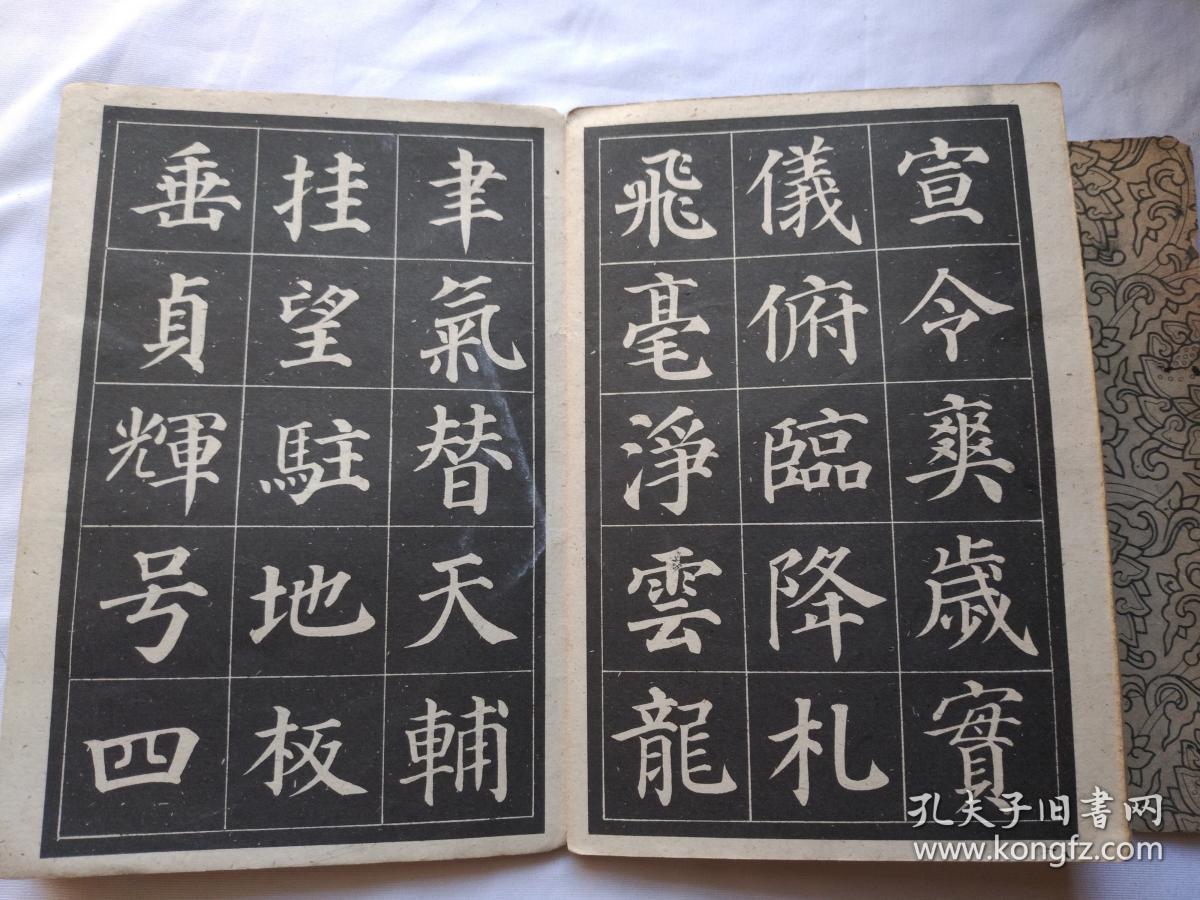 宣令爽歲實
儀俯臨降札
飛毫淨雲龍
聿氣替天輔
挂望駐地板
垂貞輝号四
孔夫子旧书网
www.kongfz.com